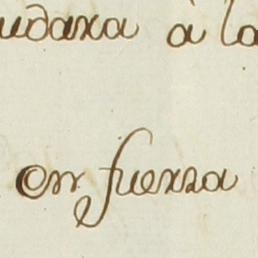 udara à la
en fuerza